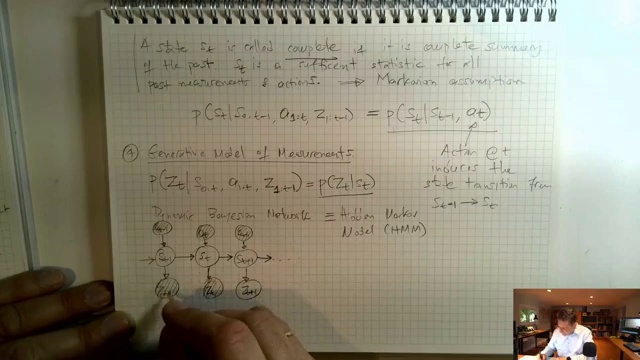 A state St is called complete if it is complete summary
of the past St is a sufficent statistic for all
past measurements & actions. ⟹ Markovian assumption
p(St | S0:t-1, a1:t, Z1:t-1) = p(St | St-1, at)
④ Generative Model of Measurements
Action @ t
induces the
state transition from
St-1 → St
p(Zt | S0:t, a1:t, Z1:t-1) = p(Zt | St)
Dynamic Bayesian Network ≡ Hidden Markov
Model (HMM)
at-1 at at+1
St-1 St St+1 ...
Zt-1 Zt Zt+1